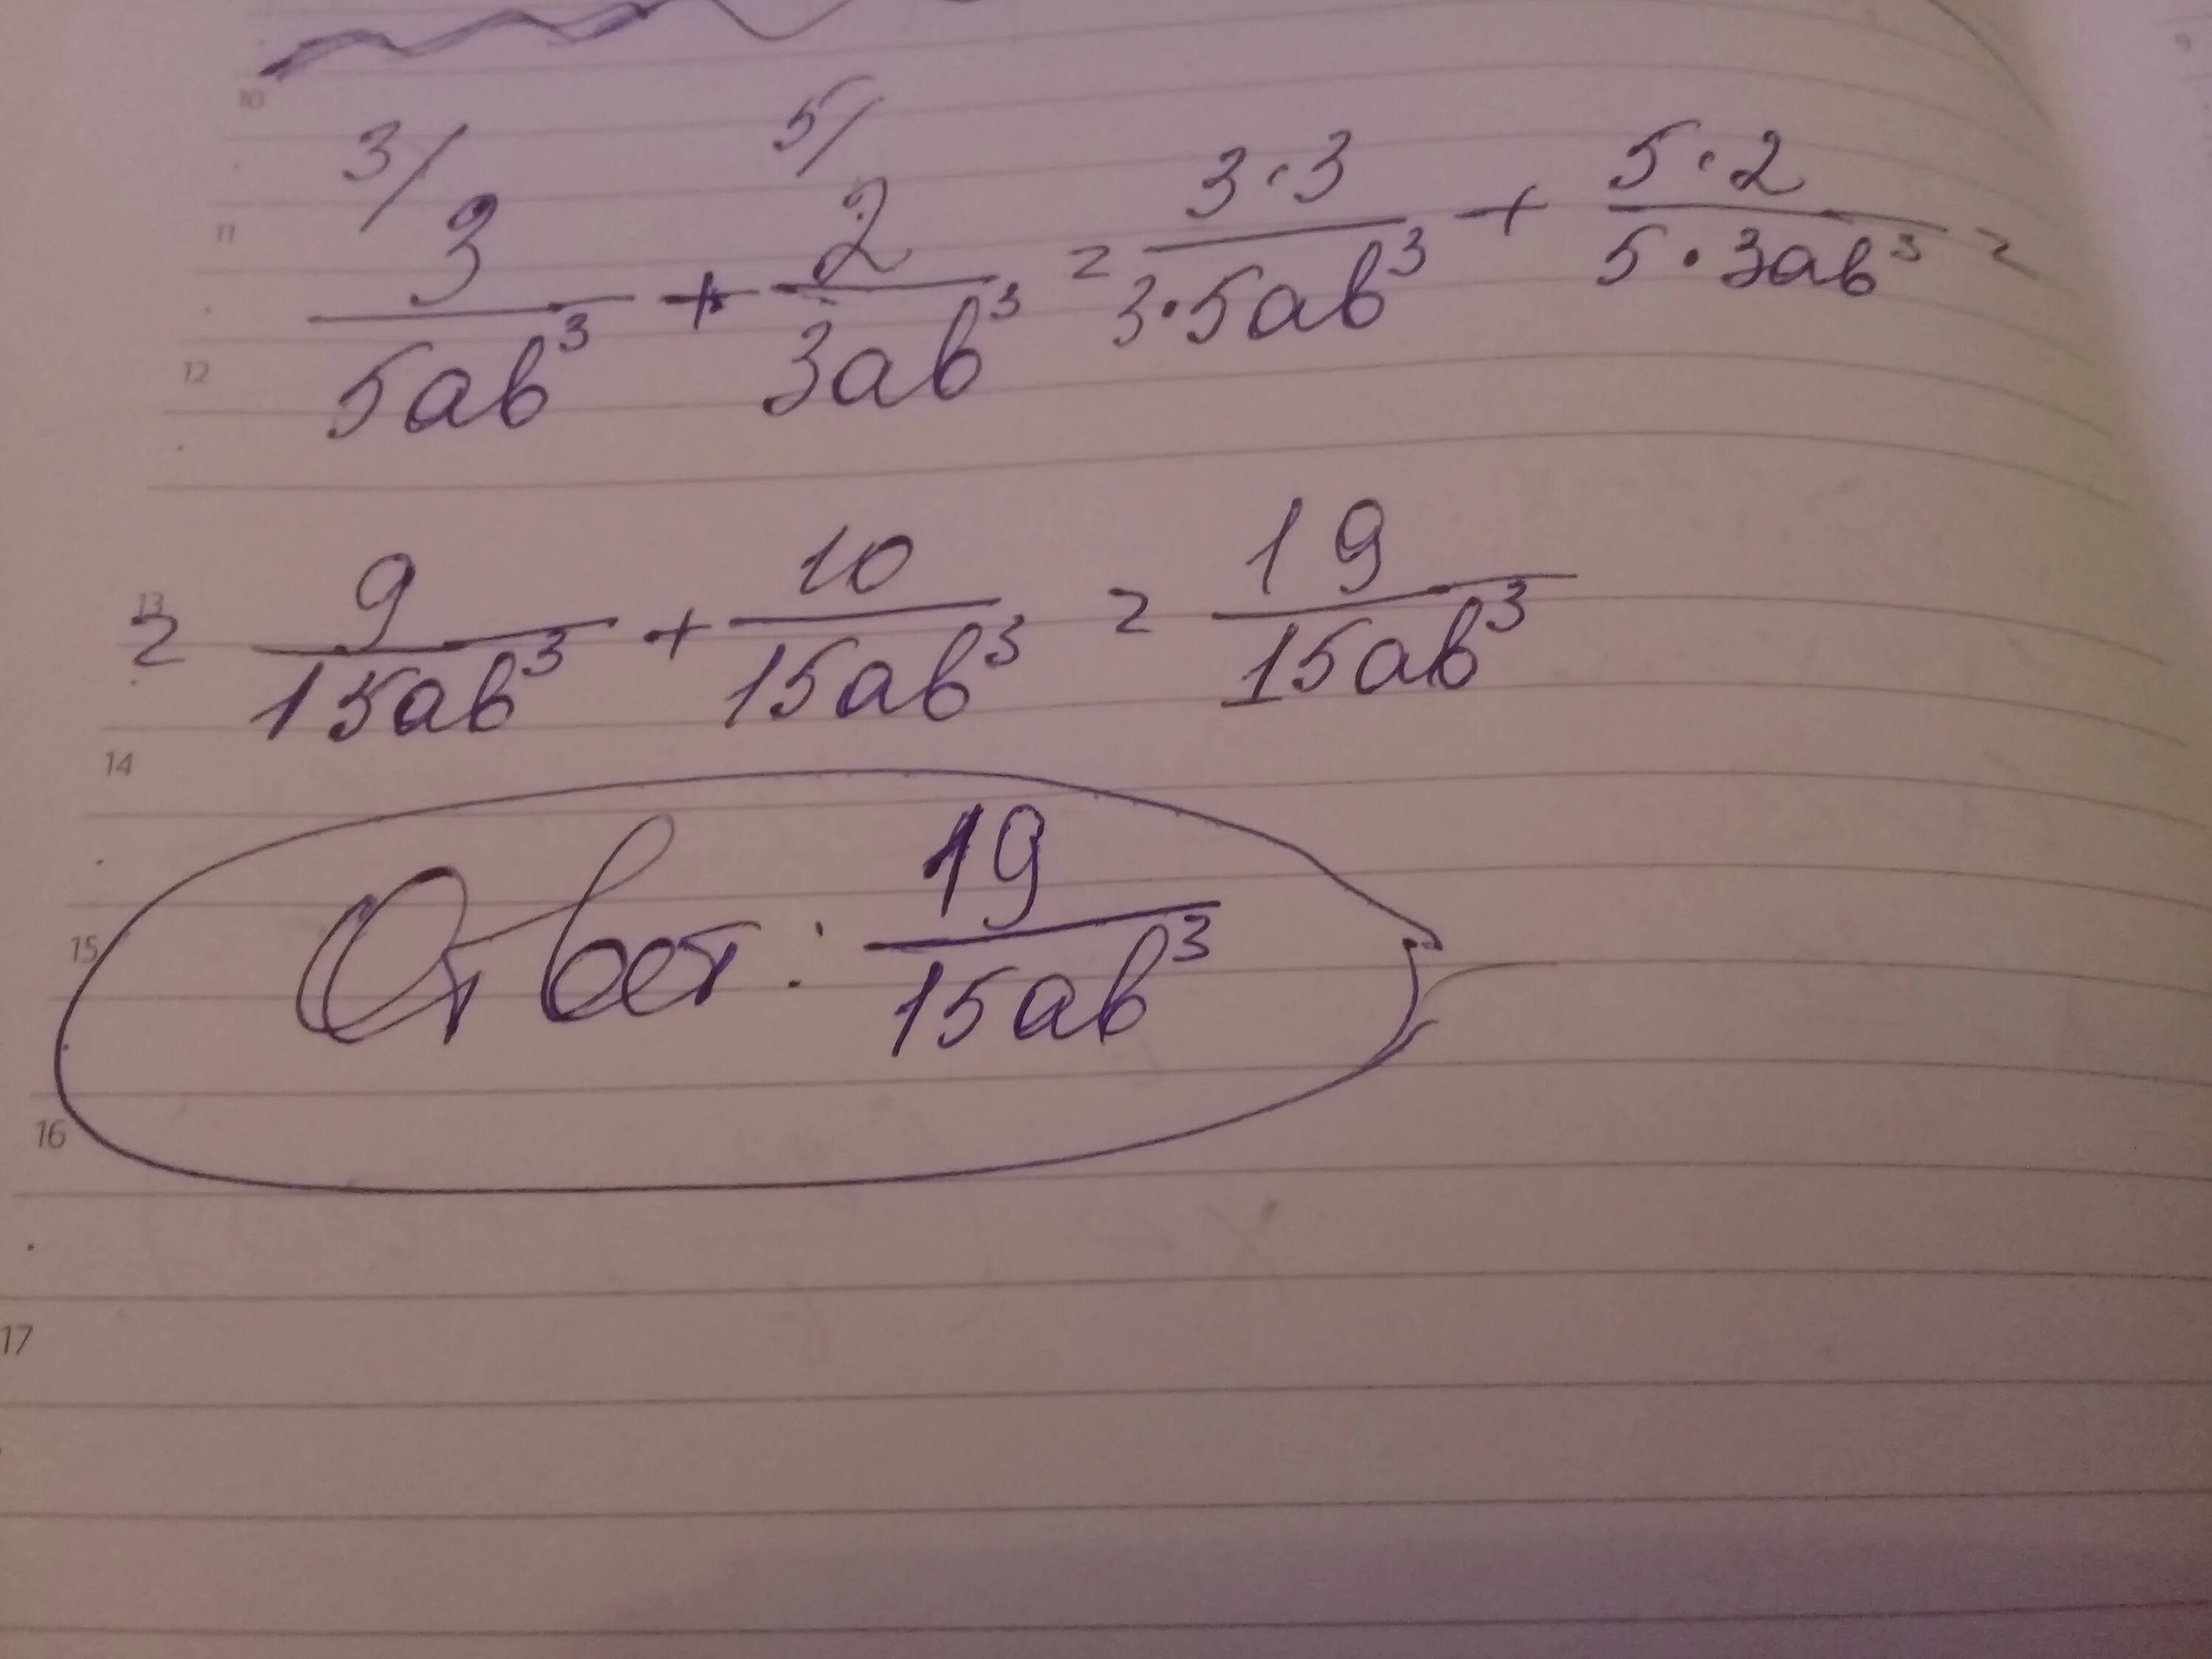 10
3/ 5/
11
3/5ab³ + 2/3ab³ = 3·3/3·5ab³ + 5·2/5·3ab³ =
12
13
= 9/15ab³ + 10/15ab³ = 19/15ab³
14
Ответ: 19/15ab³
15
16
17
9